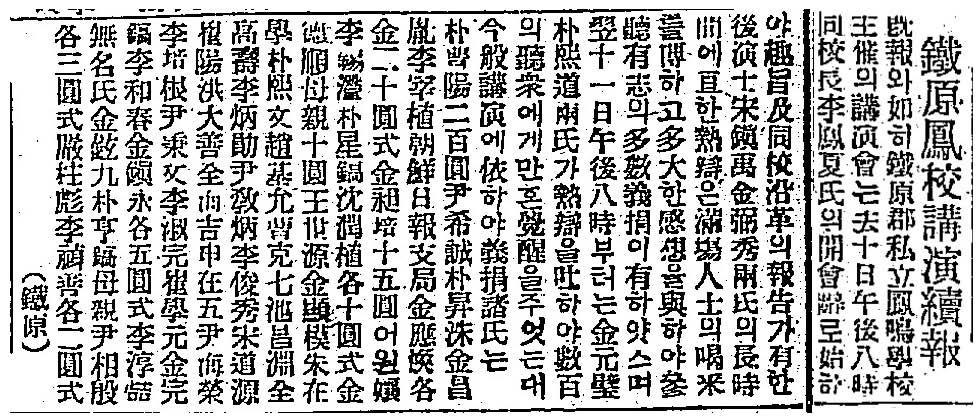 鐵原鳳校講演續報
旣報와如히鐵原郡私立鳳鳴學校
主催의講演會는去十日午後八時
同校長李鳳夏氏의開會辭로始하
야趣旨及同校沿革의報告가有한
後演士宋鎭禹金弼秀兩氏의長時
間에亘한熱辯은滿場人士의喝采
를博하고多大한感想을與하야參
聽有志의多數義捐이有하얏스며
翌十一日午後八時부터는金元璧
朴熙道兩氏가熱辯을吐하야數百
의聽衆에게만흔覺醒을주엇는대
今般講演에依하야義捐諸氏는
朴 陽二百圓尹希誠朴昇洙金昌
胤李宰植朝鮮日報支局金應 各
金二十圓式金昶培十五圓어원孃
李錫瀅朴星鎬沈潤植各十圓式金
德順母親十圓王世源金顯模朱在
學朴熙文趙基允曺克七池昌淵全
高壽李炳勛尹敎炳李俊秀宋道源
權陽洪大善全 吉申在五尹 榮
李培根尹秉 李淑完崔學元金完
鎬李和春金鎭永各五圓式李淳
無名氏金 九朴亨鎬母親尹相殷
各三圓式嚴柱彪李 各二圓式
（鐵原）